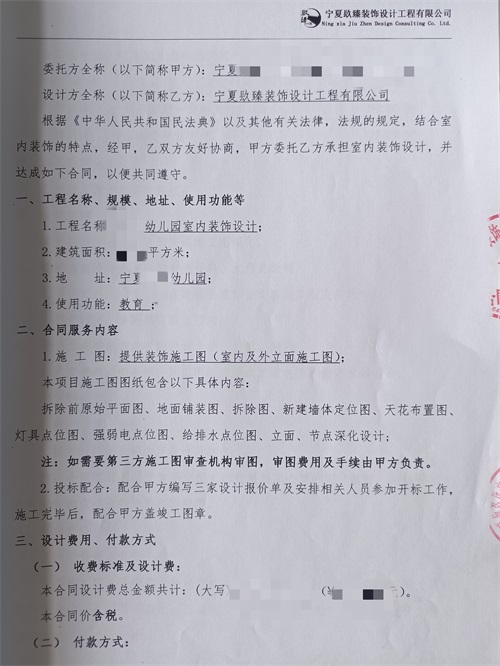 宁夏镹臻装饰设计工程有限公司
Ning xia Jiu Zhen Design Consulting Co. Ltd.
委托方全称（以下简称甲方）：宁夏
设计方全称（以下简称乙方）：宁夏镹臻装饰设计工程有限公司
根据《中华人民共和国民法典》以及其他有关法律，法规的规定，结合室
内装饰的特点，经甲，乙双方友好协商，甲方委托乙方承担室内装饰设计，并
达成如下合同，以便共同遵守。
一、工程名称、规模、地址、使用功能等
1.工程名称 幼儿园室内装饰设计；
2.建筑面积： 平方米；
3.地 址：宁夏 幼儿园；
4.使用功能：教育；
二、合同服务内容
1.施 工 图：提供装饰施工图（室内及外立面施工图）；
本项目施工图图纸包含以下具体内容：
拆除前原始平面图、地面铺装图、拆除图、新建墙体定位图、天花布置图、
灯具点位图、强弱电点位图、给排水点位图、立面、节点深化设计；
注：如需要第三方施工图审查机构审图，审图费用及手续由甲方负责。
2.投标配合：配合甲方编写三家设计报价单及安排相关人员参加开标工作，
施工完毕后，配合甲方盖竣工图章。
三、设计费用、付款方式
（一） 收费标准及设计费：
本合同设计费总金额共计：（大写 （¥ 元）。
本合同价含税。
（二） 付款方式：